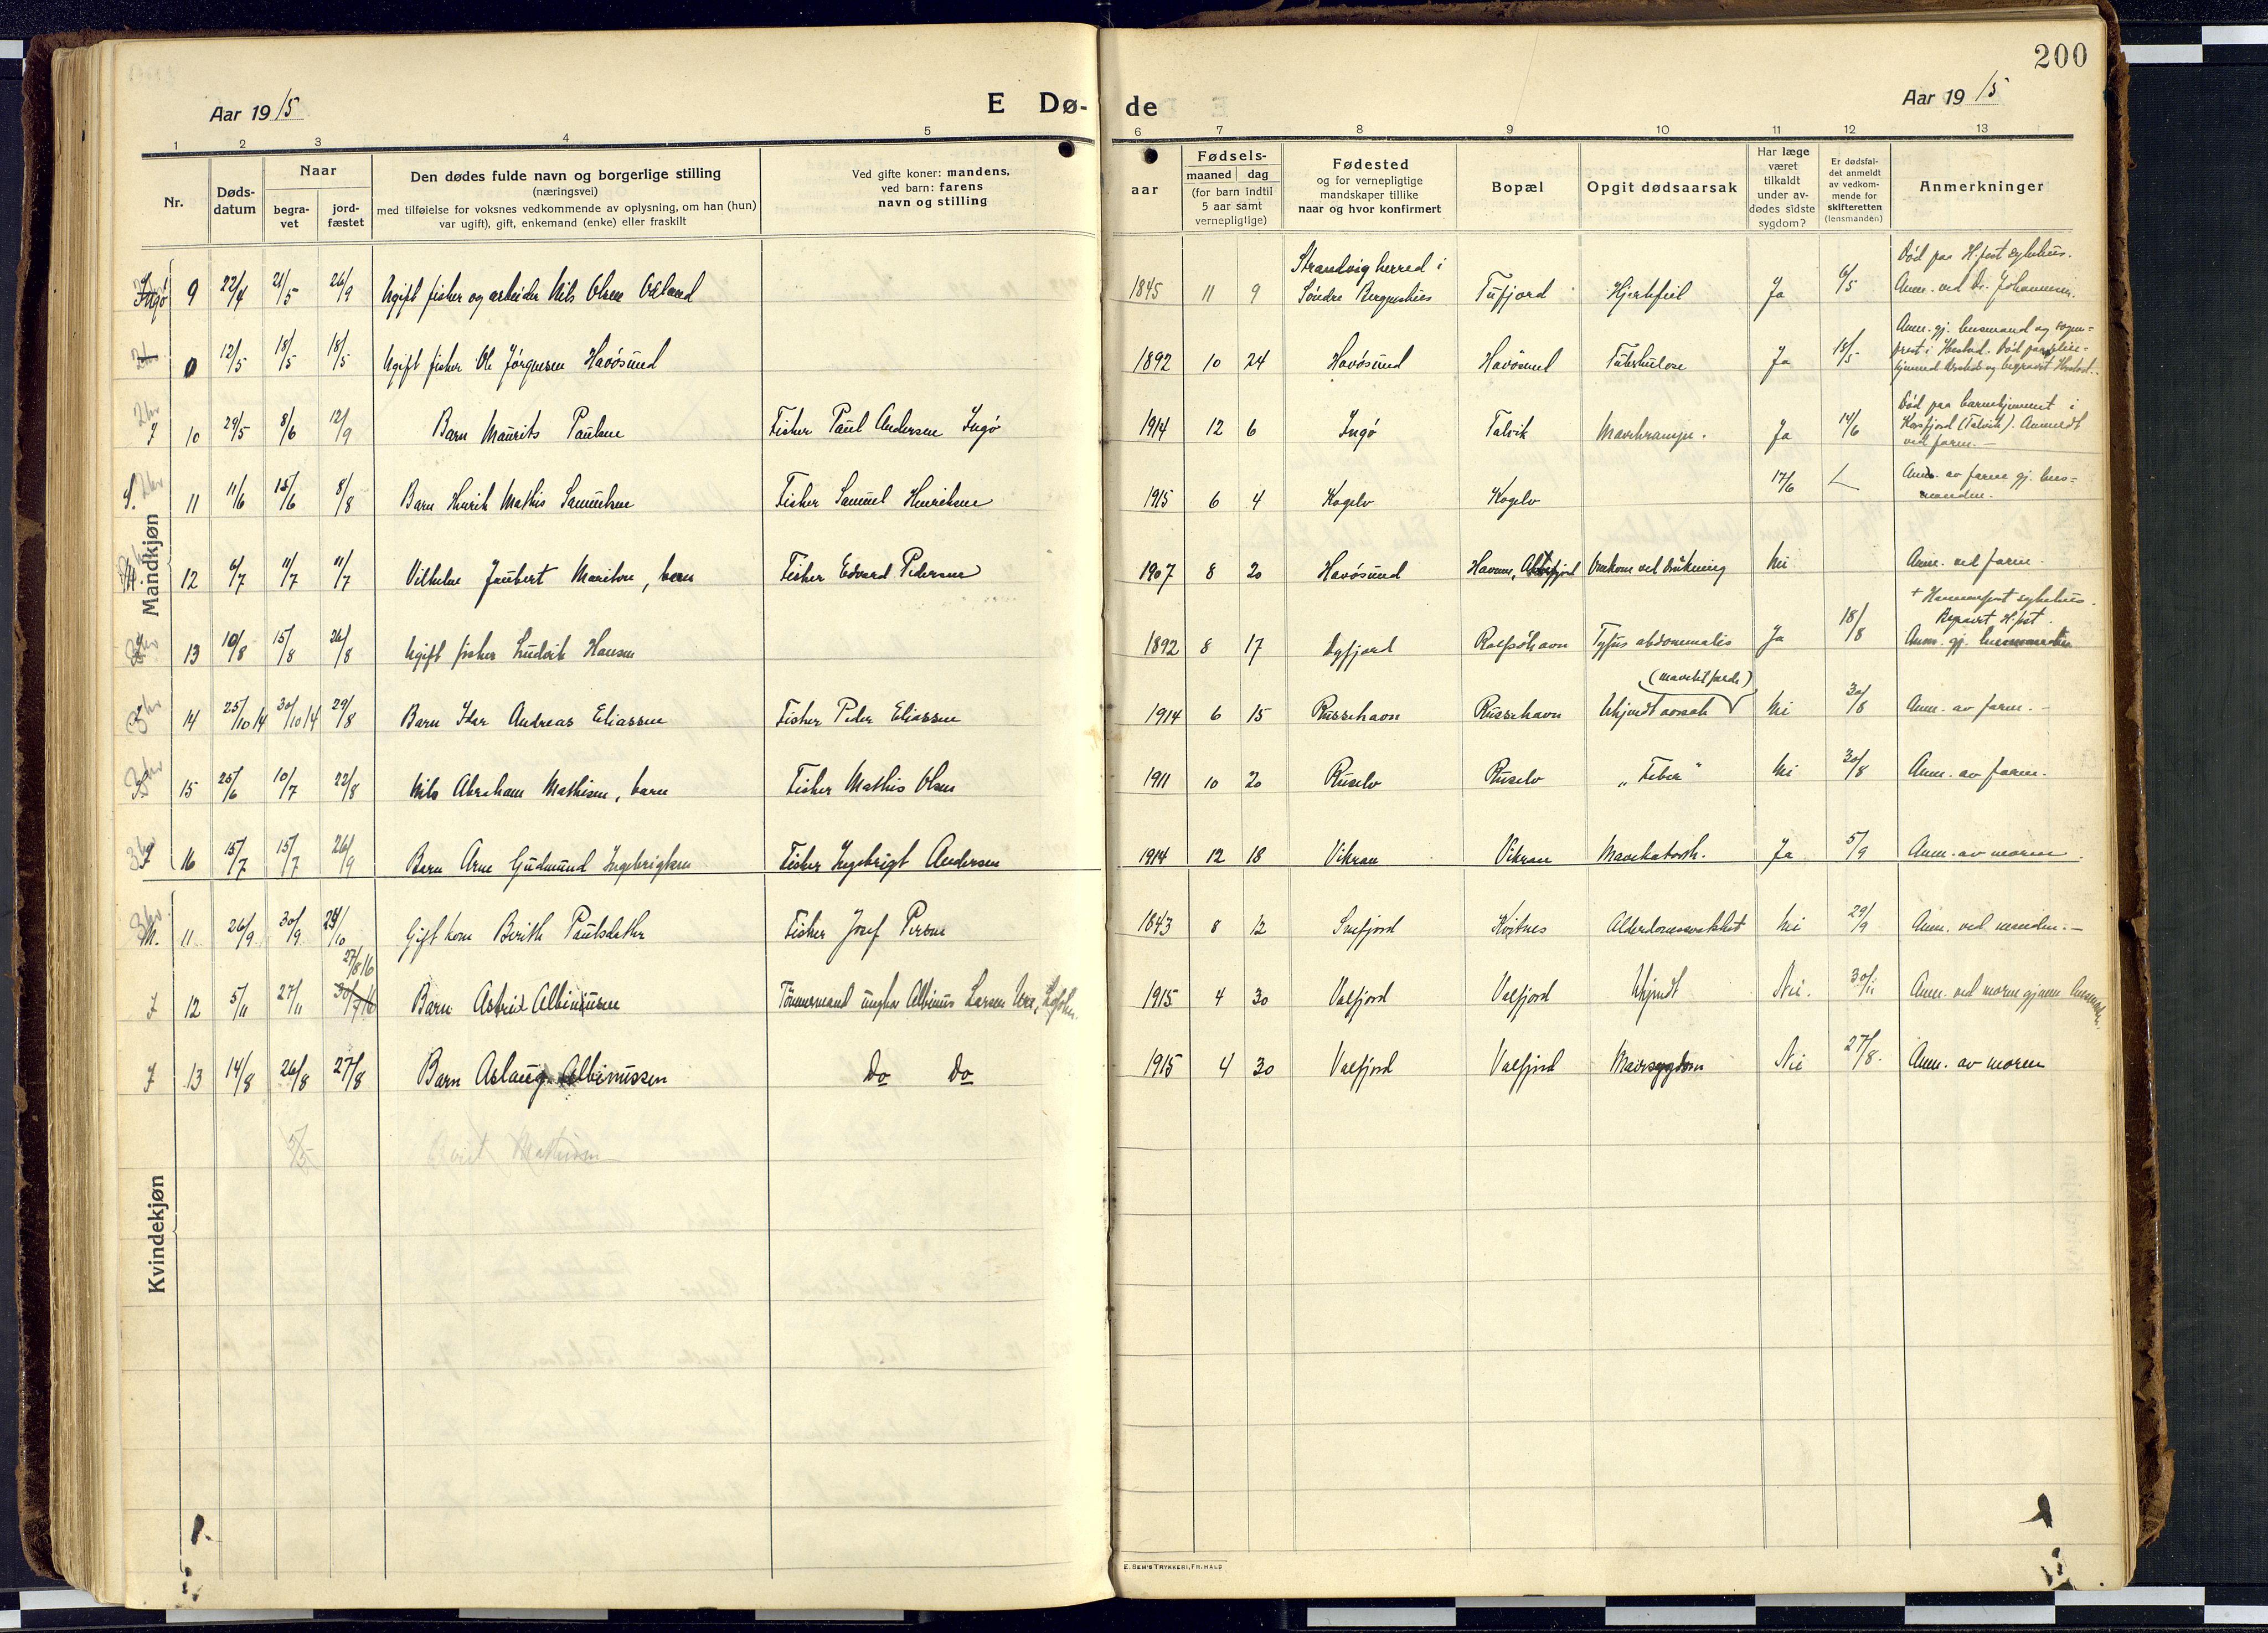 200
Aar 1915
E Dø-
de
Aar 1915
1 2 3 4 5 6 7 8 9 10 11 12 13
Nr.
Døds-
datum
Naar
begra-
vet
jord-
fæstet
Den dødes fulde navn og borgerlige stilling
(næringsvei)
med tilføielse for voksnes vedkommende av oplysning, om han (hun)
var ugift), gift, enkemand (enke) eller fraskilt
Ved gifte koner: mandens,
ved barn: farens
navn og stilling
aar
Fødsels-
maaned dag
(for barn indtil
5 aar samt
vernepligtige)
Fødested
og for vernepligtige
mandskaper tillike
naar og hvor konfirmert
Bopæl
Opgit dødsaarsak
Har læge
været
tilkaldt
under av-
dødes sidste
sygdom?
Er dødsfal-
det anmeldt
av vedkom-
mende for
skifteretten
(lensmanden)
Anmerkninger
Mandkjøn
Ingø 9 22/4 21/5 26/9 Ugift fisker og arbeider Nils Olsen 1845 11 9 Strandvig herred i Søndre Bergenshus Tufjord Hjertefeil Ja 6/5 Død paa H.fest sykehus.
Anm. ved Dr. Johannesen.
0 12/5 18/5 18/5 Ugift fisker Ole Jörgensen Havösund 1892 10 24 Havösund Havösund Tuberkulose Ja 18/5
I 10 29/5 8/6 12/9 Barn Maurits Paulsen Fisker Paul Andersen Ingö 1914 12 6 Ingö Talvik Mavekrampe. Ja 14/6 Død paa barnehjemmet i
Korsfjord (Talvik). Anmeldt
ved faren.-
11 11/6 15/6 8/8 Barn Henrik Mathis Samuelsen Fisker Samuel Henriksen 1915 6 4 Kogelv Kogelv 17/6 Anm. av faren gj. lens-
manden.
12 6/7 11/7 11/7 Vilhelm Jaubert Mariton, barn Fisker Edvard Pedersen 1907 8 20 Havösund Omkom ved drukning Nei Anm. ved faren.
13 10/8 15/8 26/8 Ugift fisker Ludvik Hansen 1892 8 17 Dyfjord Rolfsöhavn Tyfus abdominalis Ja 18/8 + Hammerfest sykehus.
Begravet H.fest.
Anm. gj. lensmanden
14 25/10 14 30/10 14 29/8 Barn Ider Andreas Eliassen Fisker Peder Eliassen 1914 6 15 Russehavn Russehavn Ukjendt aarsak Nei 30/8 Anm. av faren.-
15 25/6 10/7 22/8 Nils Abraham Mathisen, barn Fisker Mathis Olsen 1911 10 20 Ruselv Ruselv „Feber" Nei 30/8 Anm. av faren.
I 16 15/7 15/7 26/9 Barn Arne Gudmund Ingebrigtsen Fisker Ingebrigt Andersen 1914 12 18 Vikran Vikran Mavekatarrh. Ja 5/9 Anm. av moren.
M. 11 26/9 30/9 Gift kone Berith Paulsdatter Fisker Josef Persen 1843 8 12 Snefjord Kvitnes Alderdomssvakhet Nei 29/9 Anm. ved manden.-
27/8 16
I 12 5/11 27/11 30/7 16 Barn Astrid Albinussen Tömmermand ungkar Albinus Larsen 1915 4 30 Valfjord Valfjord Ukjendt Nei. 30/11 Anm. ved moren gjennem lensmanden.
I 13 14/8 26/8 27/8 Barn Aslaug Albinussen Do Do 1915 4 30 Valfjord Valfjord Mavesygdom Nei 27/8. Anm. av moren
Berit Mathisen
Kvindekjøn
E. SEM'S TRYKKERI, FR.HALD